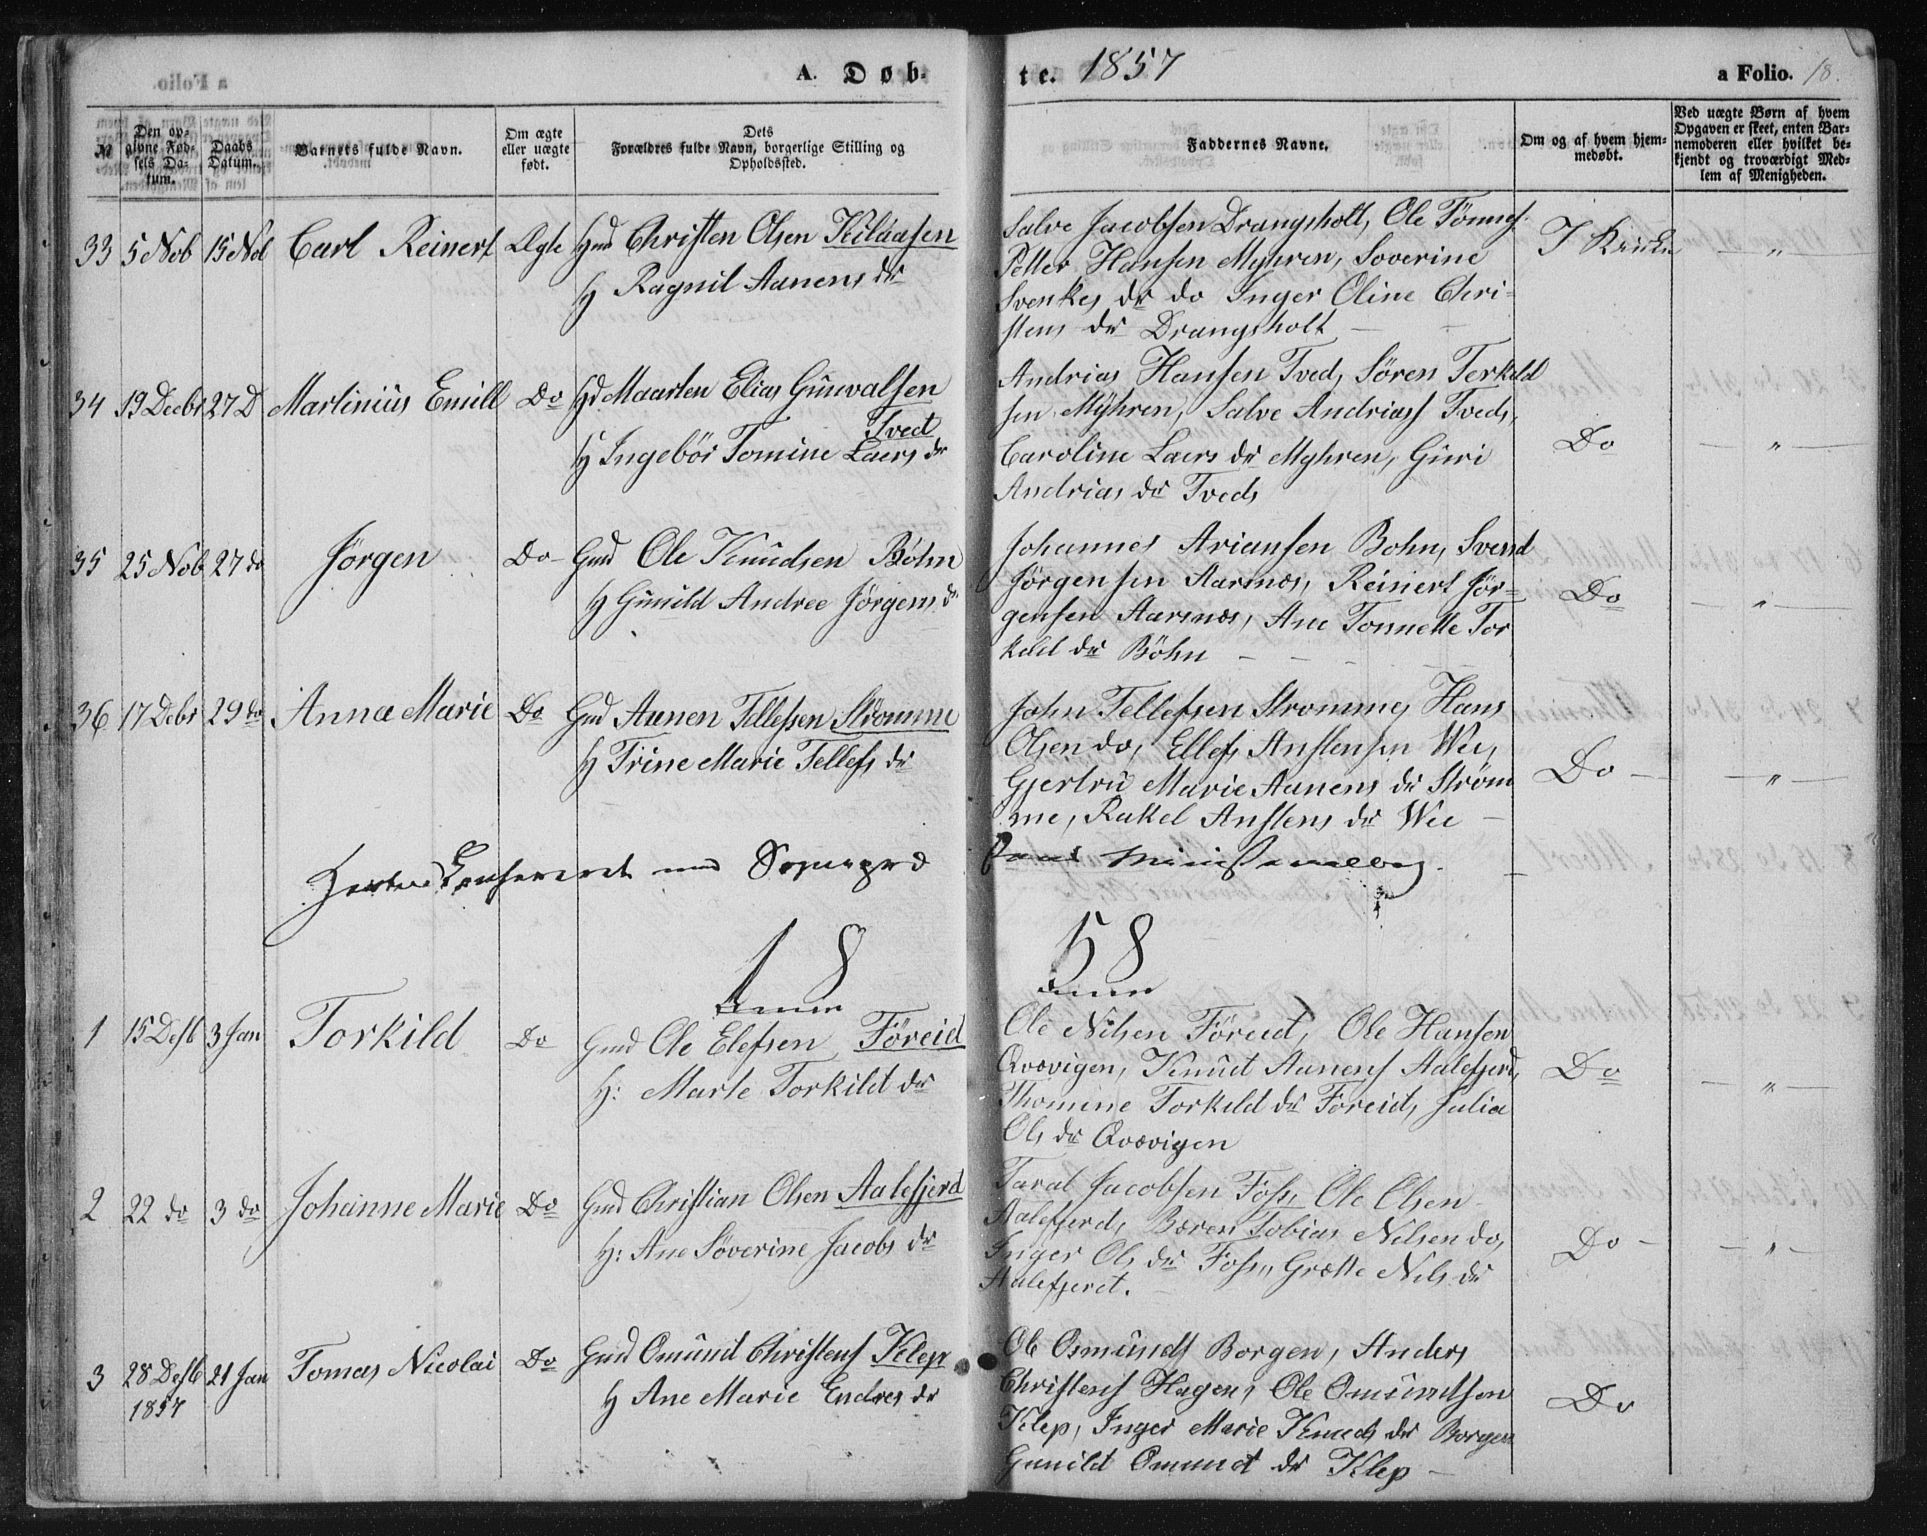 A. Døb.
te. 1857
a Folio. 18.
№
Den op-
givne Fød-
sels Da-
tum.
Daabs
Datum.
Barnets fulde Navn.
Om ægte
eller uægte
født.
Dets
Forældres fulde Navn, borgerlige Stilling og
Opholdssted.
Faddernes Navne.
Om og af hvem hjem-
medøbt.
Ved uægte Børn af hvem
Opgaven er skeet, enten Bar-
nemoderen eller hvilket be-
kjendt og troværdigt Med-
lem af Menigheden.
33 5 Nob 15 Nob Carl Reinert Ægte Christen Olsen Kilaasen
H Ragnil Aanens dr
Salve Jacobsen Drangsholt, Ole Tönnes.
Petter Hansen Myhren, Soverine
Svenkes dr do Inger Oline Chri-
stens dr Drangsholt
I Kirken
34 19 Decbr 27 D Martinius Emill Do Hd Maarten Elias Gunvalsen
Tved
H Ingebör Tomine Laers dr
Andrias Hansen Tved, Søren Terkild
sen Myhren, Salve Andriass Tveds,
Caroline Laers dr Myhren, Guri
Andrias dr Tveds
Do
35 25 Nob 27 do Jørgen Do Gmd Ole Knudsen Böhn
H Gunild Andree Jørgens dr
Johannes Ariansen Bohn, Svend
Jørgensen Aarsnes, Reinert Jør-
gensen Aarsnes, Ane Tonnette Tor
kild dr Böhn
Do
36 17 Debr 29 do Anna Marie Do Gmd Aanen Tellefsen Strömme
H Trine Marie Tellefs dr
John Tellefsen Stromme, Hans
Olsen do, Ellefs Anstensen Wee,
Gjertru Marie Aanens dr Strøm
me, Rakel Anstens dr Wee
Do
Confereret med
1 8 58
1 15 Desb 3 Jan Torkild Do Gmd Ole Elefsen Föreid
H: Marte Torkild dr
Ole Nilsen Föreid, Ole Hansen
Qvovigen, Knud Aanens Aalefjerd,
Thomine Torkild dr Foreid, Julia
Ols dr Qvovigen
Do
2 22 do 3 do Johanne Marie Do Gmd Christian Olsen Aalefjerd
H: Ane Söverine Jacobs dr
Taral Jacobsen Foss, Ole Olsen
Aalefjerd, Bæren Tobias Nilsen do,
Inger Ols dr Foss, Grætte Nils dr
Aalefjeret.
Do
3 28 Desb 21 Jan Tomas Nicolai Do Gmd Omund Christens Klep
1857
H Ane Marie Endres dr
Ole Osmunds Borgen, Anders
Christens Hagen, Ole Omundsen
Klep, Inger Marie Knuds dr Borgen
Gunild Omund dr Klep
Do